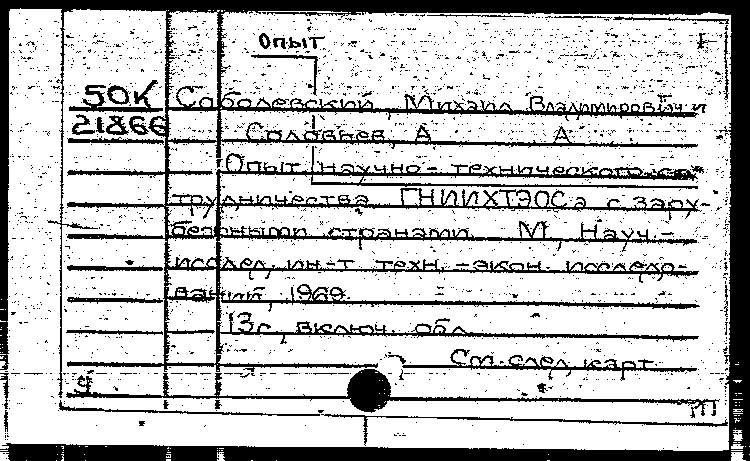 Опыт
I
50К Соболевский, Михаил Владимирович и
21866 Соловьев, А А
Опыт научно-технического со-
трудничества ГНИИХТЭОСа с зару-
бежными странами. М, Науч.-
исслед, ин-т техн.-экон. исследо-
ваний, 1969.
13с, включ. обл.
См. след. карт